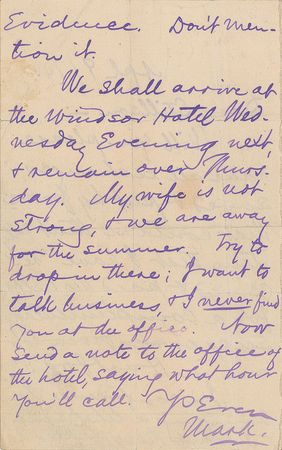 Evidence. Don't men-
tion it.
We shall arrive at
the Windsor Hotel Wed-
nesday Evening next,
& remain over Thurs-
day. My wife is not
strong, & we are away
for the summer. Try to
drop in there; I want to
talk business, & I never find
you at the office. Now
send a note to the office of
the hotel, saying what hour
you'll call.
Mark.